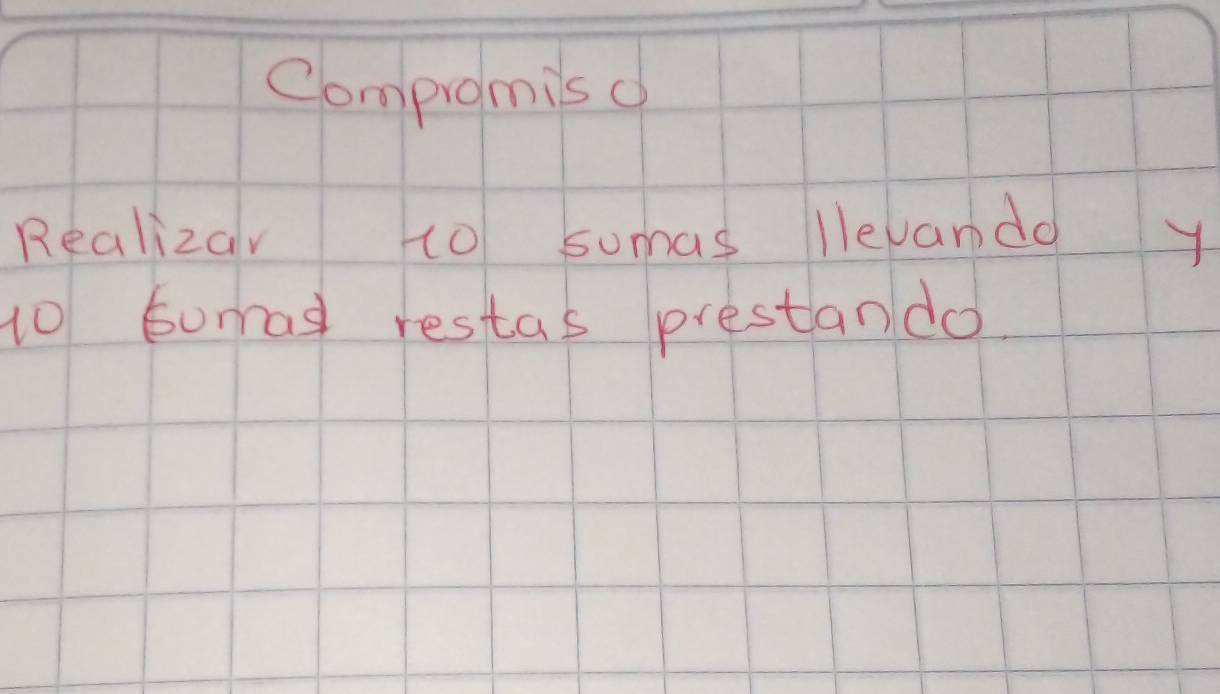 Compromiso
Realizar 10 sumas llevando y
10 sumas restas prestando.